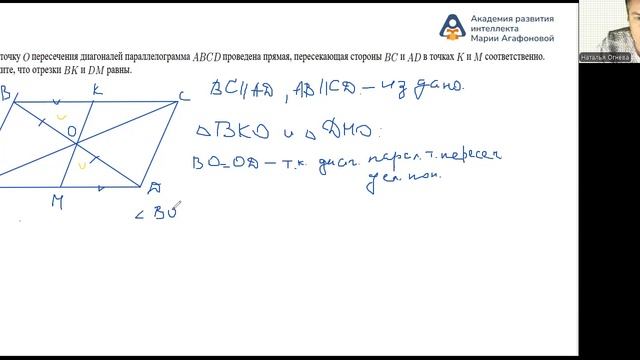 Академия развития
интеллекта
Марии Агафоновой
Наталья Огнева
точку O пересечения диагоналей параллелограмма ABCD проведена прямая, пересекающая стороны BC и AD в точках K и M соответственно.
ите, что отрезки BK и DM равны.
BC||AD, AB||CD - из дано.
B K C
△BKO и △DMO:
O
BO=OD - т.к. диаг. парал. т. пересеч
дел. поп.
M D
∠BO